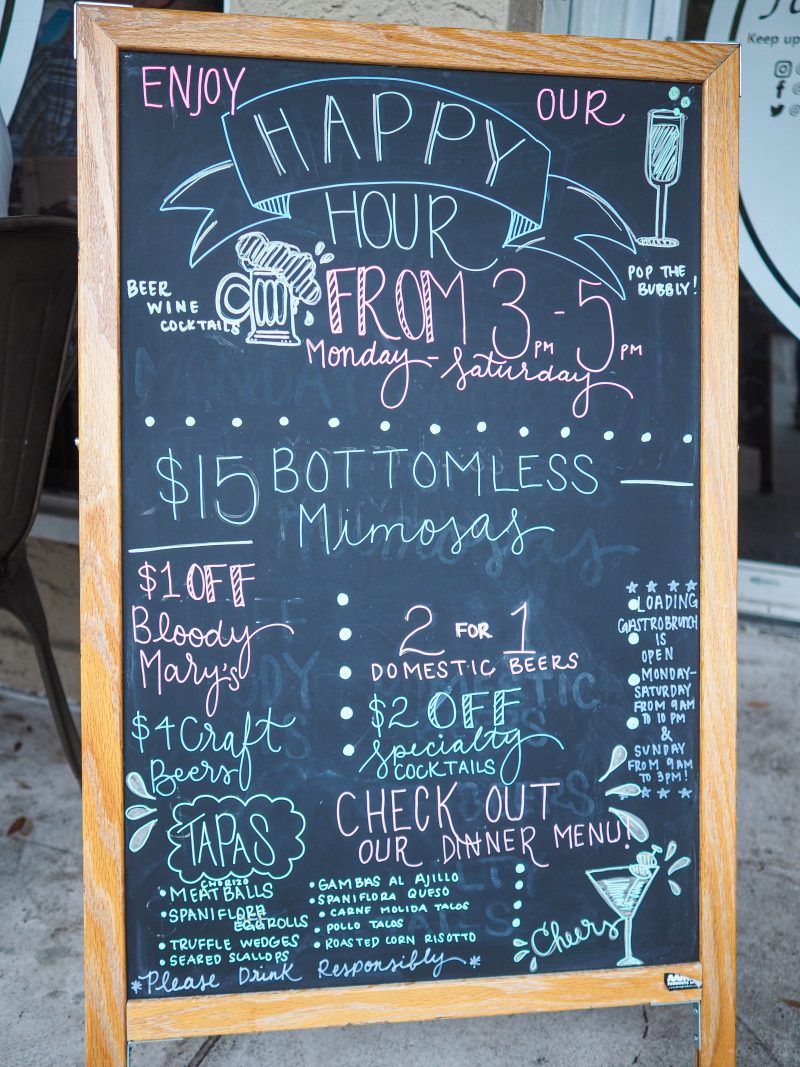 Keep up
ENJOY OUR
HAPPY
HOUR
BEER
WINE
COCKTAILS
POP THE
BUBBLY!
FROM 3PM - 5PM
Monday - Saturday
$15 BOTTOMLESS
Mimosas
$1 OFF
Bloody
Mary's
$4 Craft
Beers
2 FOR 1
DOMESTIC BEERS
$2 OFF
specialty
COCKTAILS
LOADING
GASTROBRUNCH
IS
OPEN
MONDAY-
SATURDAY
FROM 9AM
TO 10 PM
&
SUNDAY
FROM 9AM
TO 3PM!
CHECK OUT
OUR DINNER MENU!
TAPAS
CHORIZO
• MEATBALLS
• SPANIFLORA
EGGROLLS
• TRUFFLE WEDGES
• SEARED SCALLOPS
• GAMBAS AL AJILLO
• SPANIFLORA QUESO
• CARNE MOLIDA TACOS
• POLLO TACOS
• ROASTED CORN RISOTTO
Cheers
*Please Drink Responsibly*